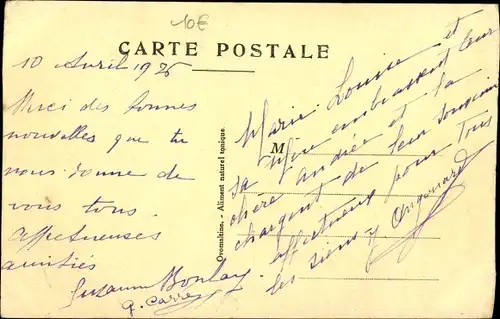 10€
CARTE POSTALE
10 Avril 1926
Merci des bonnes
nouvelles que tu
nous donne de
vous tous.
Affectueuses
amitiés
Suzanne Boulay
G. Carré
Ovomaltine. - Aliment naturel tonique.
M
Marie Louise et
sa mère embrassent leur
chère Andrée et la
chargent de leur souvenir
affectueux pour tous
les siens